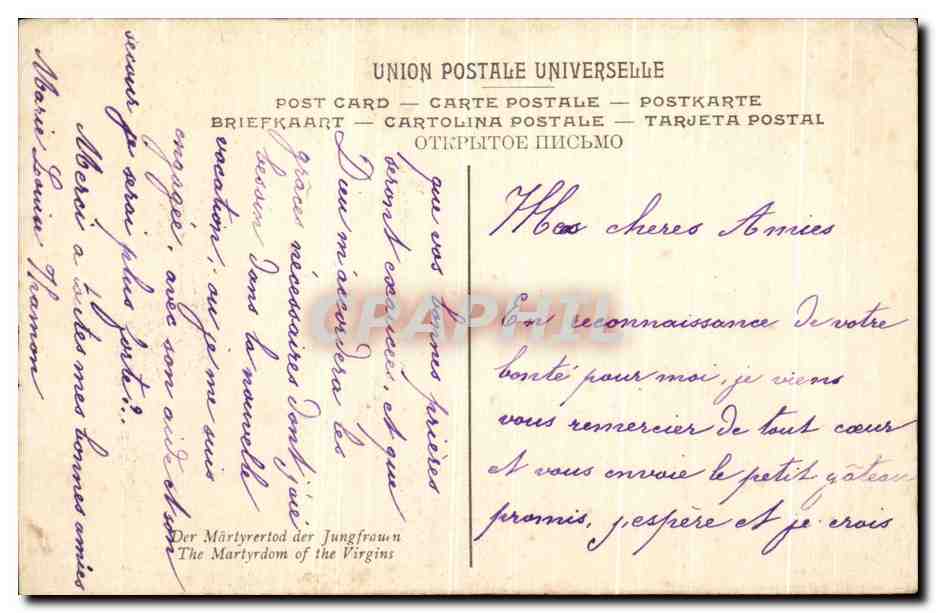 UNION POSTALE UNIVERSELLE
POST CARD — CARTE POSTALE — POSTKARTE
BRIEFKAART — CARTOLINA POSTALE — TARJETA POSTAL
ОТКРЫТОЕ ПИСЬМО
Mes cheres Amies
En reconnaissance de votre
bonté pour moi, je viens
vous remercier de tout cœur
et vous envoie le petit gâteau
promis, j'espère et je crois
que vos bonnes prières
seront exaucées, et que
Dieu m'accordera les
grâces nécessaires dont j'ai
besoin dans la nouvelle
vocation, ou je me suis
engagée, avec son aide et son
secour je serai plus forte?..
Merci a toutes mes bonnes amies
Marie Louise Thamon
Der Märtyrertod der Jungfrauen
The Martyrdom of the Virgins
CARAPHIL